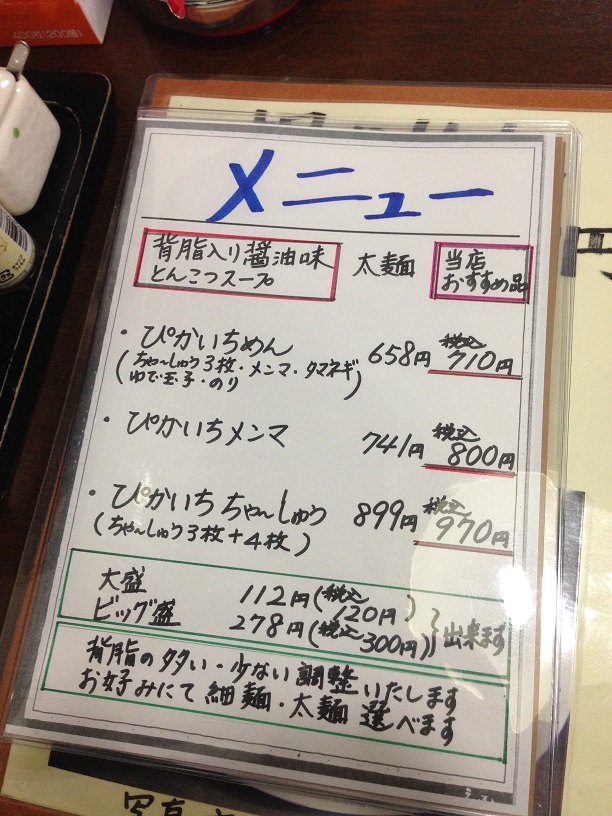 400g(200組)
メニュー
背脂入り醤油味 太麺 当店
とんこつスープ おすすめ品
・ぴかいちめん 658円 税込710円
(ちゃーしゅう3枚・メンマ・タマネギ
ゆで玉子・のり)
・ぴかいちメンマ 741円 税込800円
・ぴかいちちゃーしゅう 899円 税込970円
(ちゃーしゅう3枚+4枚)
大盛 112円(税込120円)
ビッグ盛 278円(税込300円) 出来ます
背脂の多い・少ない調整いたします
お好みにて細麺・太麺選べます
写真